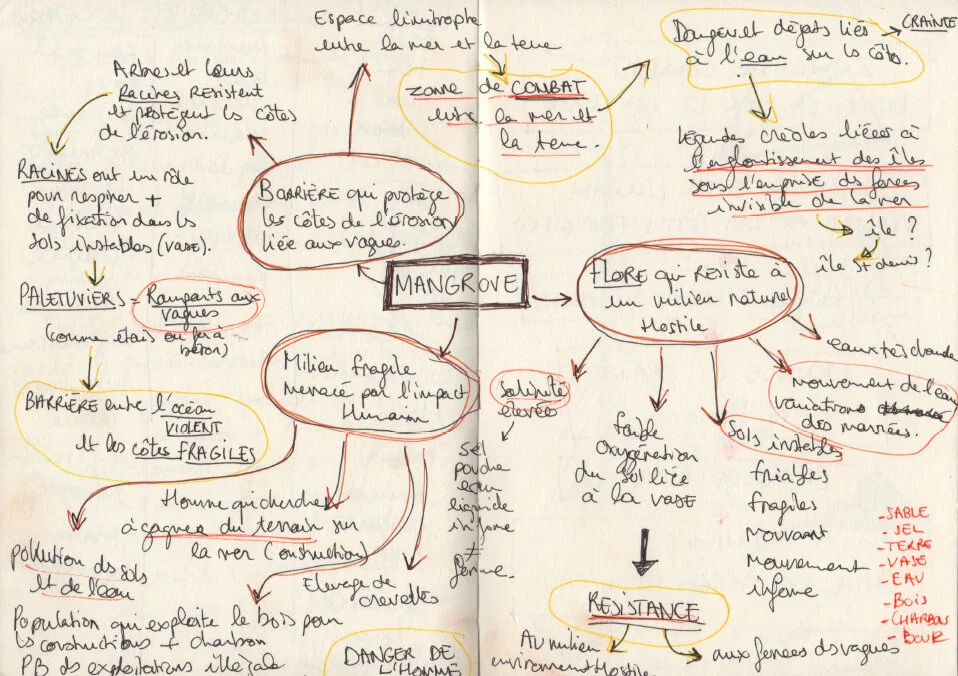 Espace limitrophe
entre la mer et la terre
Arbres et leurs
Racines résistent
et protègent les côtes
de l'érosion.
RACINES ont un rôle
pour respirer +
de fixation dans les
sols instables (VASE).
PALETUVIERS = Remparts aux
vagues
(comme étais ou fer à
béton)
BARRIÈRE entre l'océan
VIOLENT
et les côtes FRAGILES
BARRIÈRE qui protège
les côtes de l'érosion
liée aux vagues.
ZONNE de COMBAT
entre la mer et
la terre.
Danger et dégats liés
à l'eau sur les côtes.
CRAINTE
légendes créoles liées à
l'engloutissement des îles
sous l'emprise ds forces
invisible de la mer
île ?
île st denis ?
MANGROVE
FLORE qui résiste à
un milieu naturel
Hostile
Milieu fragile
menacé par l'impact
Humain
salinité
élevée
sel
poudre
eau
liquide
informe
≠
forme.
faible
oxygénation
du sol liée
à la VASE
Sols instables
friables
fragiles
mouvant
mouvement
informe
eaux très chaudes
mouvement de l'eau
variations
des marrées.
- SABLE
- SEL
- TERRE
- VASE
- EAU
- Bois
- CHARBON
- BOUE
RESISTANCE
Au milieu
environnement Hostile
aux forces ds vagues
Homme qui cherche
à gagner du terrain sur
la mer (construction)
pollution ds sols
et de l'eau
Elevage de
crevettes
Population qui exploite le bois pour
les constructions + charbon
PB ds exploitations illégale
DANGER DE
L'HOMME